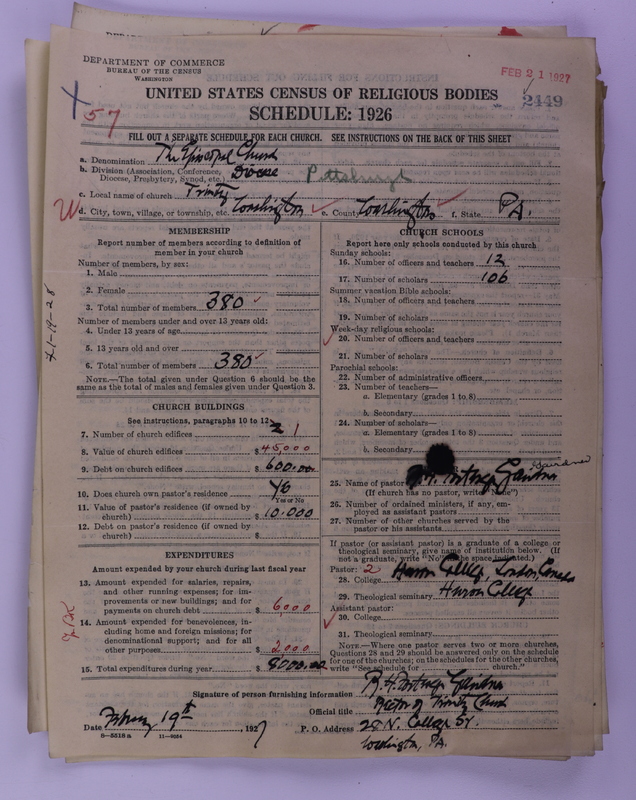 DEPARTMENT OF COMMERCE
BUREAU OF THE CENSUS
WASHINGTON
FEB 21 1927
2449
57
UNITED STATES CENSUS OF RELIGIOUS BODIES
SCHEDULE: 1926
FILL OUT A SEPARATE SCHEDULE FOR EACH CHURCH. SEE INSTRUCTIONS ON THE BACK OF THIS SHEET
a. Denomination The Episcopal Church
b. Division (Association, Conference, Diocese, Presbytery, Synod, etc.) Diocese Pittsburgh
c. Local name of church Trinity
W d. City, town, village, or township, etc. Washington e. County Washington f. State PA.
MEMBERSHIP
Report number of members according to definition of
member in your church
Number of members, by sex:
1. Male
2. Female
3. Total number of members 380
Number of members under and over 13 years old:
4. Under 13 years of age
5. 13 years old and over
6. Total number of members 380
NOTE.—The total given under Question 6 should be
same as the total of males and females given under Question 3.
4-19-28
CHURCH BUILDINGS
See instructions, paragraphs 10 to 12
7. Number of church edifices 2 1
8. Value of church edifices $ 45,000
9. Debt on church edifices $ 600.00
10. Does church own pastor's residence Yes
Yes or No
11. Value of pastor's residence (if owned by
church) $ 10.000
12. Debt on pastor's residence (if owned by
church) $
EXPENDITURES
Amount expended by your church during last fiscal year
13. Amount expended for salaries, repairs,
and other running expenses; for im-
provements or new buildings; and for
payments on church debt $ 6000
14. Amount expended for benevolences, in-
cluding home and foreign missions; for
denominational support; and for all
other purposes $ 2,000
15. Total expenditures during year $ 8000.00
CHURCH SCHOOLS
Report here only schools conducted by this church
Sunday schools:
16. Number of officers and teachers 12
17. Number of scholars 106
Summer vacation Bible schools:
18. Number of officers and teachers
19. Number of scholars
Week-day religious schools:
20. Number of officers and teachers
21. Number of scholars
Parochial schools:
22. Number of administrative officers
23. Number of teachers—
a. Elementary (grades 1 to 8)
b. Secondary
24. Number of scholars—
a. Elementary (grades 1 to 8)
b. Secondary
Gairdner
25. Name of pastor
(If church has no pastor, write
26. Number of ordained ministers, if any, em-
ployed as assistant pastors
27. Number of other churches served by the
pastor or his assistants
If pastor (or assistant pastor) is a graduate of a college or
theological seminary, give name of institution below. (If
not a graduate, write "No" in the space indicated.)
Pastor: 2
28. College Huron College, London, Canada
29. Theological seminary Huron College
Assistant pastor:
30. College
31. Theological seminary
NOTE.—Where one pastor serves two or more churches,
Questions 28 and 29 should be answered only on the schedule
for one of the churches; on the schedules for the other churches,
write "See schedule for church."
Signature of person furnishing information
Official title Rector of Trinity Church
Date February 19th, 1927 P. O. Address 28 N. College St.
Washington, PA.
8-5518a 11-9034